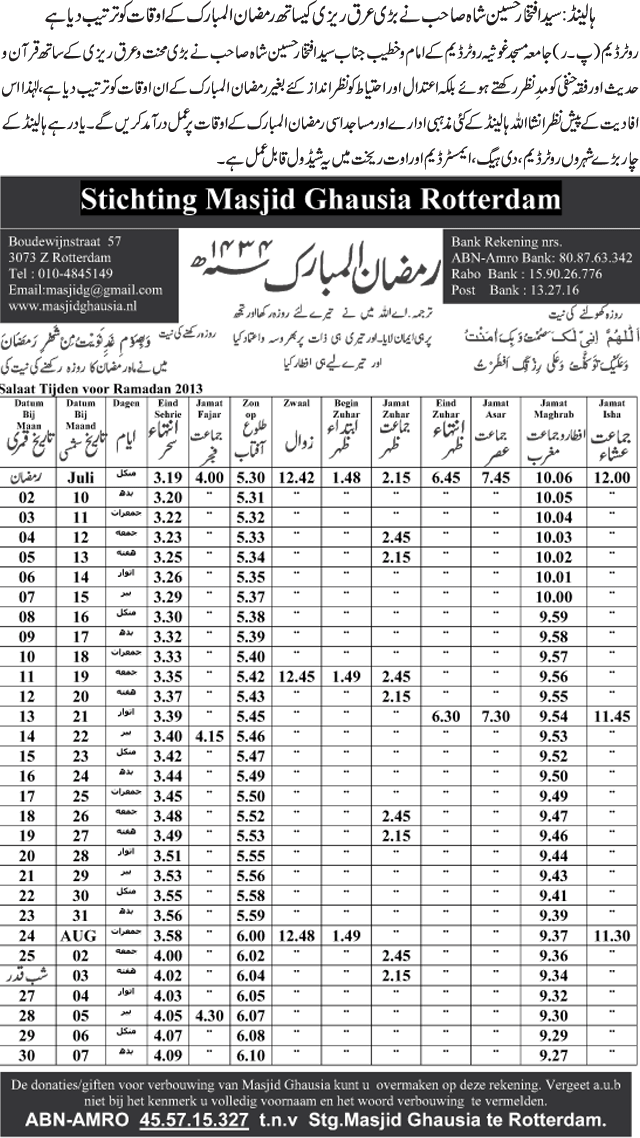 ہالینڈ: سید افتخار حسین شاہ صاحب نے بڑی عرق ریزی کیساتھ رمضان المبارک کے اوقات کو ترتیب دیا ہے
روٹرڈیم (پ۔ر) جامعہ مسجد غوثیہ روٹرڈیم کے امام و خطیب جناب سید افتخار حسین شاہ صاحب نے بڑی محنت و عرق ریزی کے ساتھ قرآن و
حدیث اور فقہ حنفی کو مدِ نظر رکھتے ہوئے بلکہ اعتدال اور احتیاط کو نظر انداز کئے بغیر رمضان المبارک کے ان اوقات کو ترتیب دیا ہے، لہٰذا اس
افادیت کے پیش نظر انشا اللہ ہالینڈ کے کئی مذہبی ادارے اور مساجد اسی رمضان المبارک کے اوقات پر عمل درآمد کریں گے۔ یاد رہے ہالینڈ کے
چار بڑے شہروں روٹرڈیم، دی ہیگ، ایمسٹرڈیم اور اوت ریخت میں یہ شیڈول قابل عمل ہے۔
Stichting Masjid Ghausia Rotterdam
Boudewijnstraat 57
3073 Z Rotterdam
Tel : 010-4845149
Email:masjidg@gmail.com
www.masjidghausia.nl
رمضان المبارک ۱۴۳۴ سنہ ھ
Bank Rekening nrs.
ABN-Amro Bank: 80.87.63.342
Rabo Bank : 15.90.26.776
Post Bank : 13.27.16
روزہ کھولنے کی نیت
اَللّٰهُمَّ اِنِّی لَکَ صُمْتُ وَبِکَ اٰمَنْتُ
وَعَلَیْکَ تَوَکَّلْتُ وَعَلٰی رِزْقِکَ اَفْطَرْتُ
ترجمہ۔ اے اللہ میں نے تیرے لئے روزہ رکھا اور تجھ
پر ہی ایمان لایا۔ اور تیری ہی ذات پر بھروسہ و اعتماد کیا
اور تیرے لیے ہی افطار کیا
روزہ رکھنے کی نیت
وَبِصَوْمِ غَدٍ نَوَيْتُ مِنْ شَهْرِ رَمَضَانَ
میں نے ماہ رمضان کا روزہ رکھنے کی نیت کی
Salaat Tijden voor Ramadan 2013
Datum Bij Maan | Datum Bij Maand | Dagen | Eind Sehrie | Jamat Fajar | Zon op | Zwaal | Begin Zuhar | Jamat Zuhar | Eind Zuhar | Jamat Asar | Jamat Maghrab | Jamat Isha
تاریخ قمری | تاریخ شمسی | ایام | انتہاء سحر | جماعت فجر | طلوع آفتاب | زوال | ابتداء ظہر | جماعت ظہر | انتہاء ظہر | جماعت عصر | افطار و جماعت مغرب | جماعت عشاء
رمضان Juli منگل 3.19 4.00 5.30 12.42 1.48 2.15 6.45 7.45 10.06 12.00
02 10 بدھ 3.20 " 5.31 " " " " " 10.05 "
03 11 جمعرات 3.22 " 5.32 " " " " " 10.04 "
04 12 جمعه 3.23 " 5.33 " " 2.45 " " 10.03 "
05 13 هفته 3.25 " 5.34 " " 2.15 " " 10.02 "
06 14 اتوار 3.26 " 5.35 " " " " " 10.01 "
07 15 پیر 3.29 " 5.37 " " " " " 10.00 "
08 16 منگل 3.30 " 5.38 " " " " " 9.59 "
09 17 بدھ 3.32 " 5.39 " " " " " 9.58 "
10 18 جمعرات 3.33 " 5.40 " " " " " 9.57 "
11 19 جمعه 3.35 " 5.42 12.45 1.49 2.45 " " 9.56 "
12 20 هفته 3.37 " 5.43 " " 2.15 " " 9.55 "
13 21 اتوار 3.39 " 5.45 " " " 6.30 7.30 9.54 11.45
14 22 پیر 3.40 4.15 5.46 " " " " " 9.53 "
15 23 منگل 3.42 " 5.47 " " " " " 9.52 "
16 24 بدھ 3.44 " 5.49 " " " " " 9.50 "
17 25 جمعرات 3.45 " 5.50 " " " " " 9.49 "
18 26 جمعه 3.48 " 5.52 " " 2.45 " " 9.47 "
19 27 هفته 3.49 " 5.53 " " 2.15 " " 9.46 "
20 28 اتوار 3.51 " 5.55 " " " " " 9.44 "
21 29 پیر 3.53 " 5.56 " " " " " 9.43 "
22 30 منگل 3.55 " 5.58 " " " " " 9.41 "
23 31 بدھ 3.56 " 5.59 " " " " " 9.39 "
24 AUG جمعرات 3.58 " 6.00 12.48 1.49 " " " 9.37 11.30
25 02 جمعه 4.00 " 6.02 " " 2.45 " " 9.36 "
شب قدر 03 هفته 4.02 " 6.04 " " 2.15 " " 9.34 "
27 04 اتوار 4.03 " 6.05 " " " " " 9.32 "
28 05 پیر 4.05 4.30 6.07 " " " " " 9.30 "
29 06 منگل 4.07 " 6.08 " " " " " 9.29 "
30 07 بدھ 4.09 " 6.10 " " " " " 9.27 "
De donaties/giften voor verbouwing van Masjid Ghausia kunt u overmaken op deze rekening. Vergeet a.u.b
niet bij het kenmerk u volledig voornaam en het woord verbouwing te vermelden.
ABN-AMRO 45.57.15.327 t.n.v Stg.Masjid Ghausia te Rotterdam.